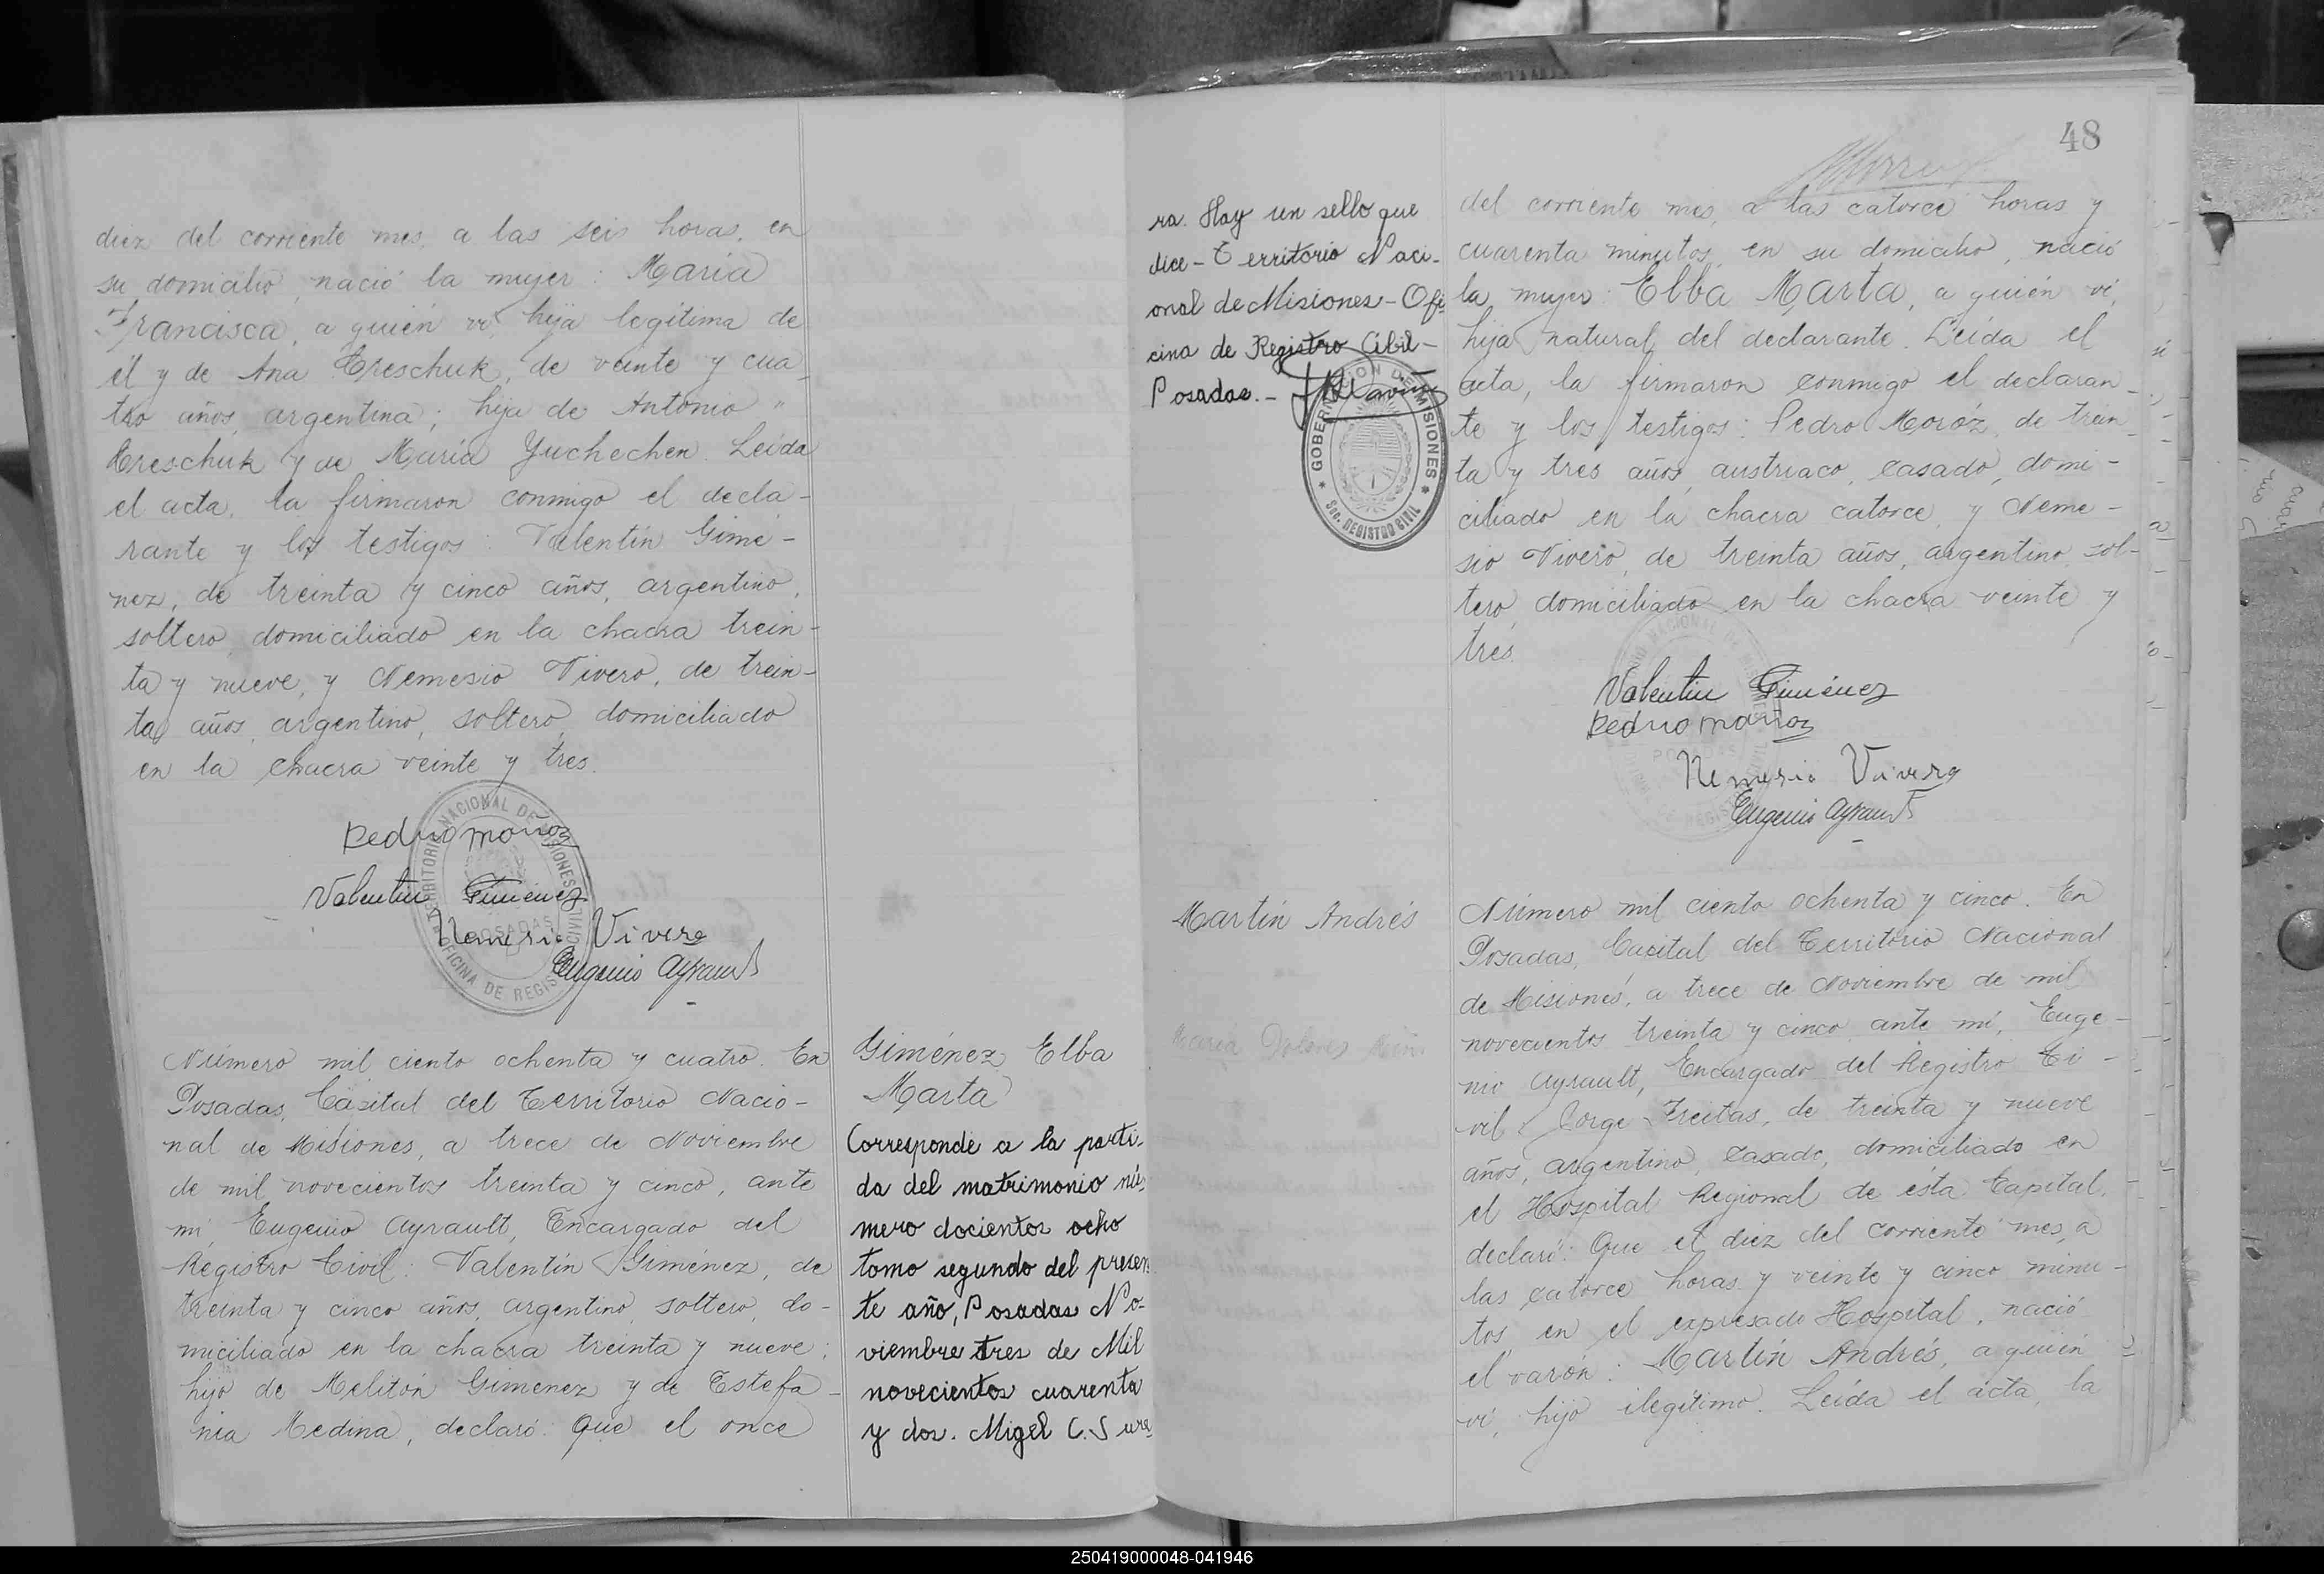 diez del corriente mes, a las seis horas, en
su domicilio, nació la mujer: María
Francisca, a quién vi, hija legítima de
él y de Ana Creschuk, de veinte y cua-
tro años, argentina; hija de Antonio "
Creschuk y de María Yuchechen. Leída
el acta, la firmaron conmigo el decla-
rante y los testigos: Valentín Gimé-
nez, de treinta y cinco años, argentino,
soltero, domiciliado en la chacra trein-
ta y nueve, y Nemesio Vivero, de trein-
ta años, argentino, soltero, domiciliado
en la chacra veinte y tres.
Pedro Moroz
Valentin Giménez
Nemesio Vivero
Eugenio Ayrault
TERRITORIO NACIONAL DE MISIONES
POSADAS
OFICINA DE REGISTRO CIVIL
Número mil ciento ochenta y cuatro. En
Posadas, Capital del Territorio Nacio-
nal de Misiones, a trece de Noviembre
de mil novecientos treinta y cinco, ante
mí, Eugenio Ayrault, Encargado del
Registro Civil: Valentín Giménez, de
treinta y cinco años, argentino, soltero, do-
miciliado en la chacra treinta y nueve;
hijo de Melitón Gimenez y de Estefa-
nia Medina, declaró: Que el once
Giménez Elba
Marta
Corresponde a la parti-
da del matrimonio nú-
mero docientos ocho
tomo segundo del presen
te año, Posadas No-
viembre tres de Mil
novecientos cuarenta
y dos. Migel C. Sure
48
ra. Hay un sello que
dice - Territorio Naci-
onal de Misiones - Ofi
cina de Registro Cibil -
Posadas. -
GOBERNACION DE MISIONES
Sec. REGISTRO CIVIL
del corriente mes, a las catorce horas y
cuarenta minutos, en su domicilio, nació
la mujer: Elba Marta, a quién vi,
hija natural del declarante. Leída el
acta, la firmaron conmigo el declaran-
te y los testigos: Pedro Moróz, de trein-
ta y tres años, austriaco, casado, domi-
ciliado en la chacra catorce, y Neme-
sio Vivero, de treinta años, argentino, sol-
tero, domiciliado en la chacra veinte y
tres.
Valentin Giménez
Pedro Moroz
Nemesio Vivero
Eugenio Ayrault
Martín Andrés
María Dolores
Número mil ciento ochenta y cinco. En
Posadas, Capital del Territorio Nacional
de Misiones, a trece de Noviembre de mil
novecientos treinta y cinco, ante mí, Euge-
nio Ayrault, Encargado del Registro Ci-
vil: Jorge Freitas, de treinta y nueve
años, argentino, casado, domiciliado en
el Hospital Regional de ésta Capital,
declaró: Que el diez del corriente mes, a
las catorce horas y veinte y cinco minu-
tos, en el expresado Hospital, nació
el varón: Martín Andrés, a quién
vi, hijo ilegítimo. Leída el acta, la
250419000048-041946